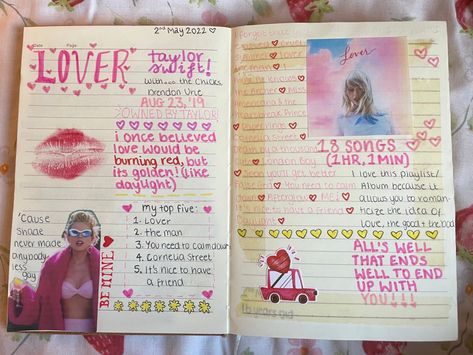 2nd May 2022
LOVER
taylor
swift!
with... the Chicks,
Brendon Urie
AUG 23, '19
OWNED BY TAYLOR!
i once believed
love would be
burning red, but
its golden! (like
daylight)
'Cause
shade
never made
anybody
less
gay
BE MINE
my top five:
1. Lover
2. the man
3. You need to calm down
4. Cornelia Street
5. It's nice to have
a friend
forgot that you
existed cruel
summer lover
he knows
Miss
Prince
Paper Rings
Street
by a thousand
London Boy
Soon you'll get better
False God You need to calm
down Afterglow ME!
nice to have a friend
Daylight
Lover
18 SONGS
(1HR, 1MIN)
I love this playlist/
Album because it
allows you to roman-
ticize the idea of
love, the good + the bad
ALL'S WELL
THAT ENDS
WELL TO END
UP WITH
YOU!!!